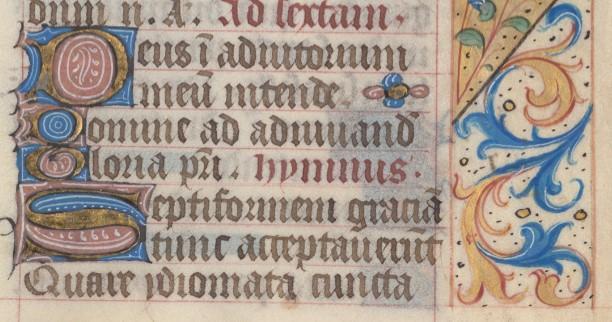 dūm n. A. Ad sextam.
Deus ī adiutorium
meū intende.
Domine ad adiuuand
Gloria pri. hymnus.
Septiformem graciā
tunc acceptauerūt
Quare ydiomata cuncta